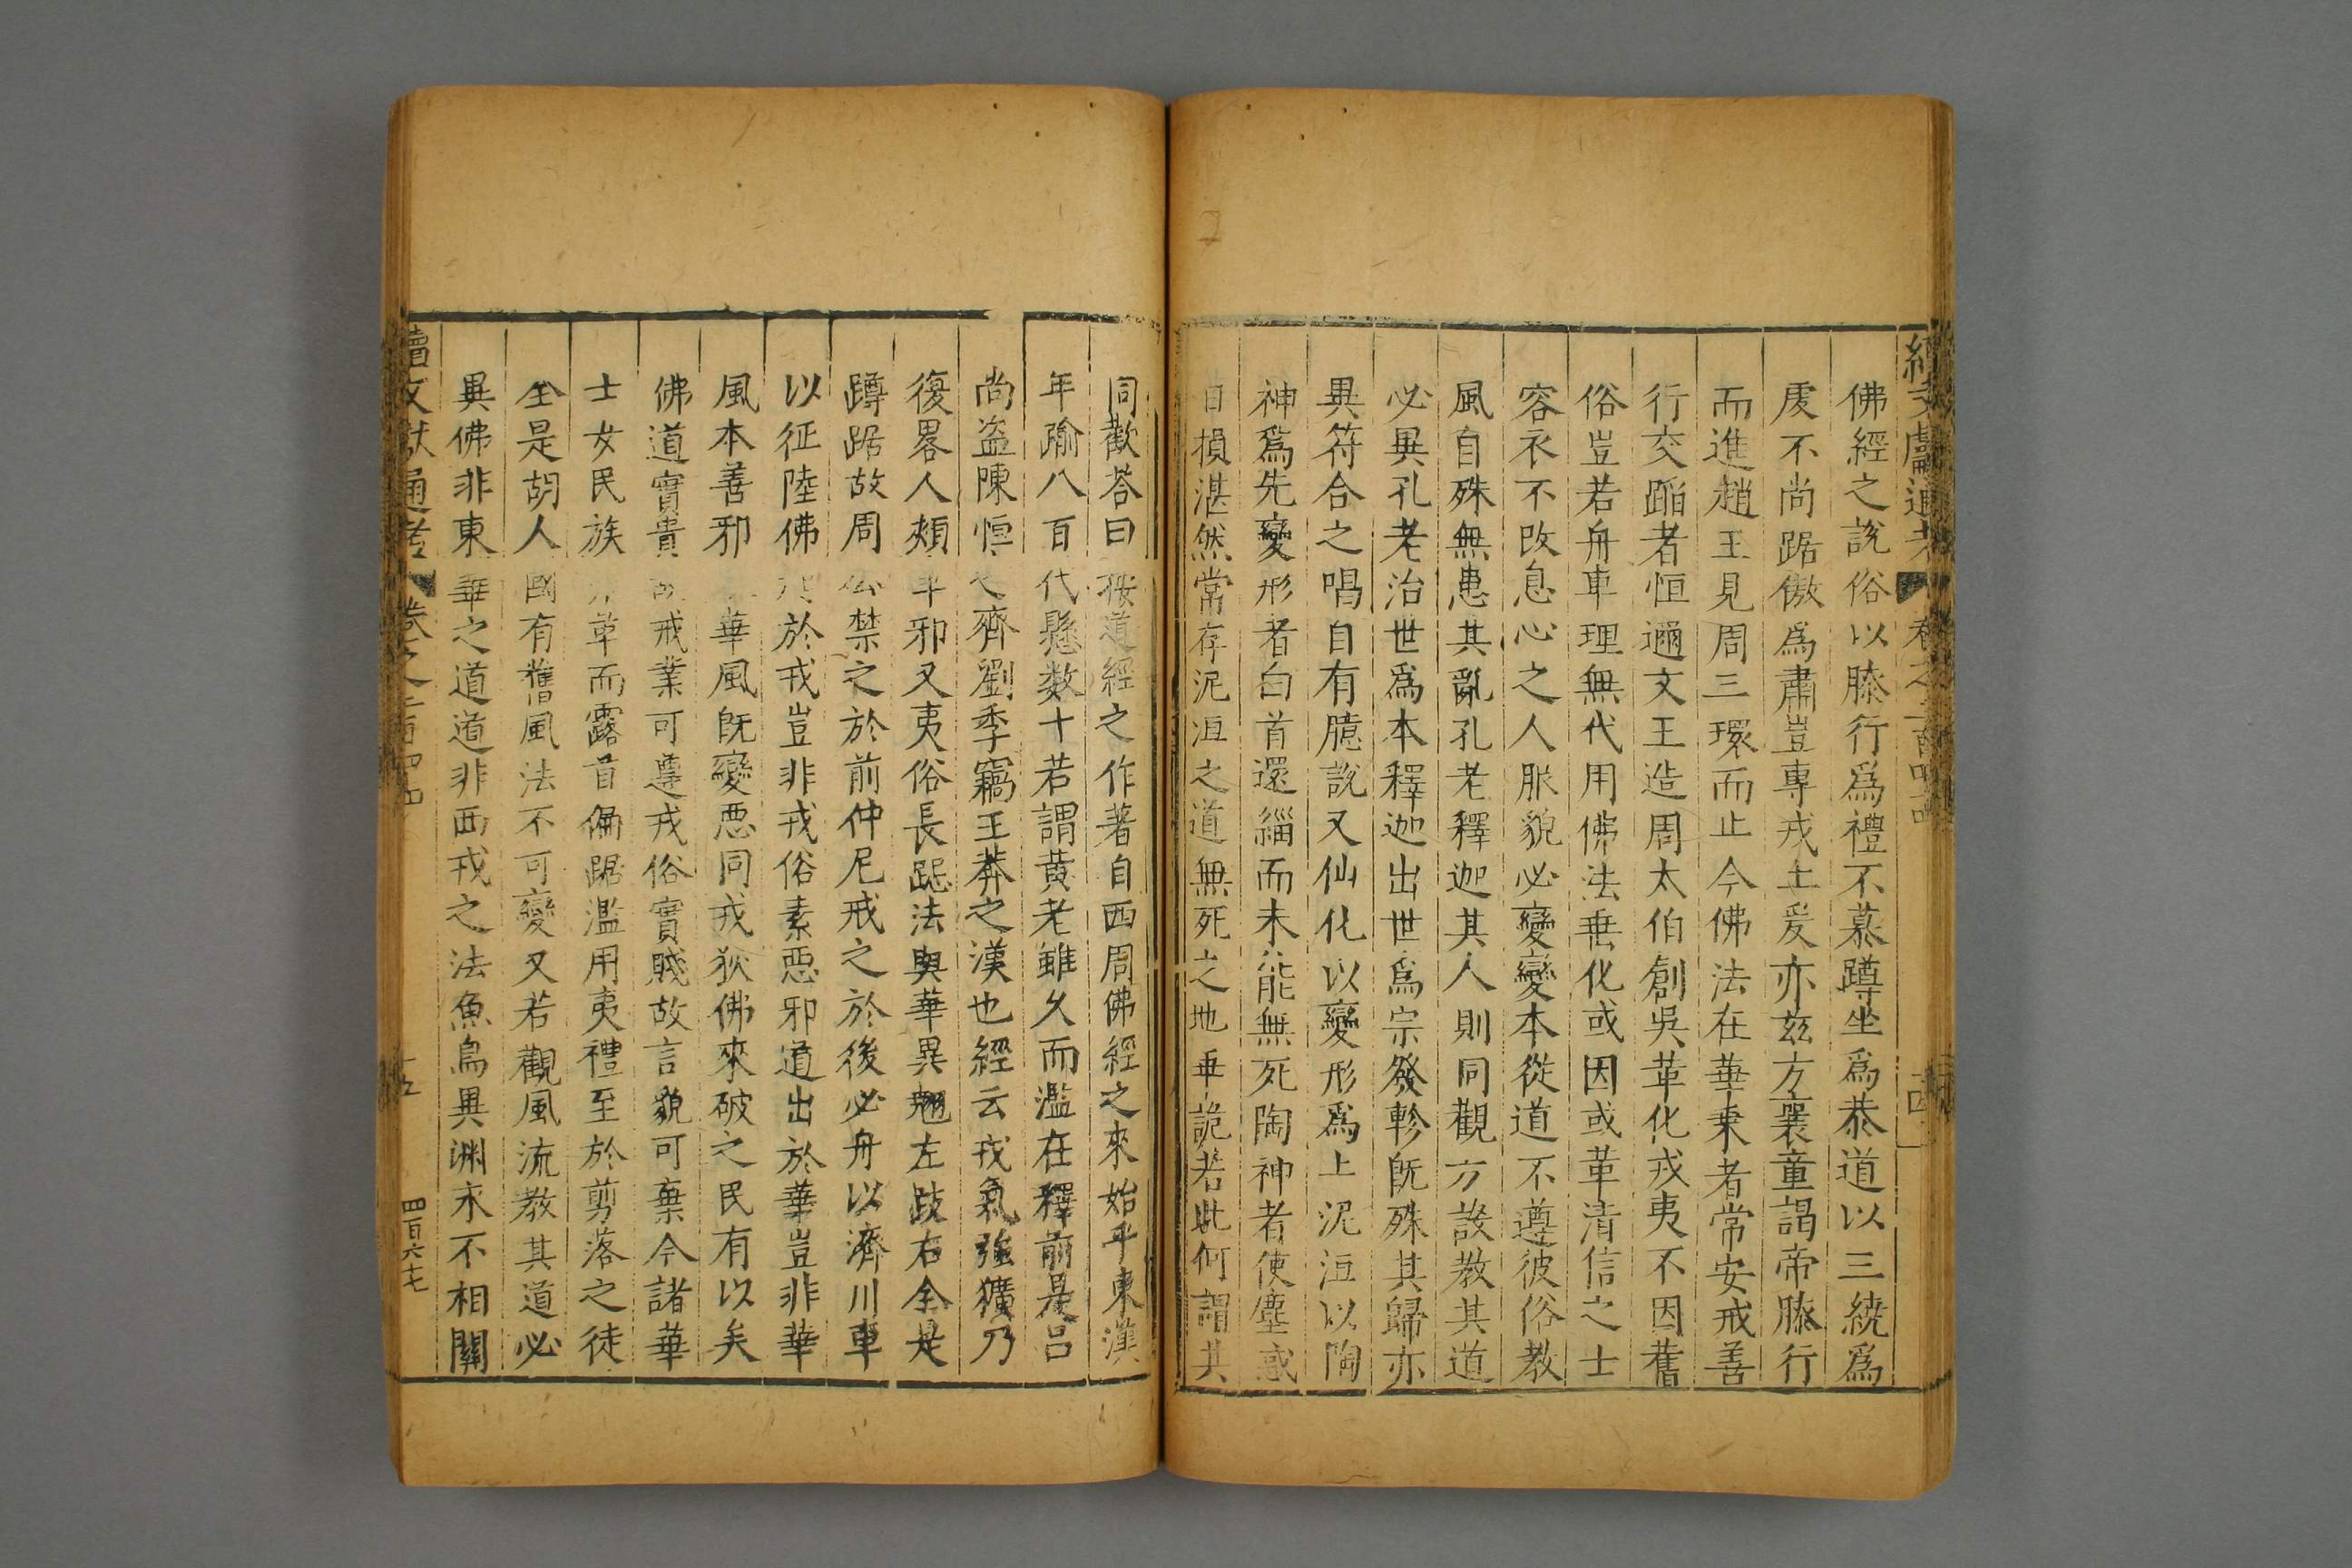 續文獻通考 卷之二百四十四 十四
佛經之說俗以膝行爲禮不慕蹲坐爲恭道以三繞爲
虔不尚踞傲爲肅豈專戎土爰亦茲方襄童謁帝膝行
而進趙王見周三環而止今佛法在華乗者常安戒善
行交蹈者恒通文王造周太伯創吳革化戎夷不因舊
俗豈若舟車理無代用佛法垂化或因或革清信之士
容衣不改息心之人服貌必變變本從道不遵彼俗教
風自殊無患其亂孔老釋迦其人則同觀方設教其道
必異孔老治世爲本釋迦出世爲宗發軫旣殊其歸亦
異符合之唱自有臆說又仙化以變形爲上泥洹以陶
神爲先變形者白首還緇而未能無死陶神者使塵惑
日損湛然常存泥洹之道無死之地乖詭若此何謂其
同歡荅曰按道經之作著自西周佛經之來始乎東漢
年踰八百代懸數十若謂黃老雖久而濫在釋前是呂
尚盜陳恒之齊劉季竊王莽之漢也經云戎氣強獷乃
復畧人頰車邪又夷俗長跽法與華異翹左跂右全是
蹲踞故周公禁之於前仲尼戒之於後必舟以濟川車
以征陸佛起於戎豈非戎俗素惡邪道出於華豈非華
風本善邪 華風旣變惡同戎狄佛來破之民有以矣
佛道實貴故戒業可遵戎俗實賤故言貌可棄今諸華
士女民族 革而露首偏踞濫用夷禮至於剪落之徒
全是胡人國有舊風法不可變又若觀風流教其道必
異佛非東華之道道非西戎之法魚鳥異淵永不相關
續文獻通考 卷之二百四十四 十五 四百六十七